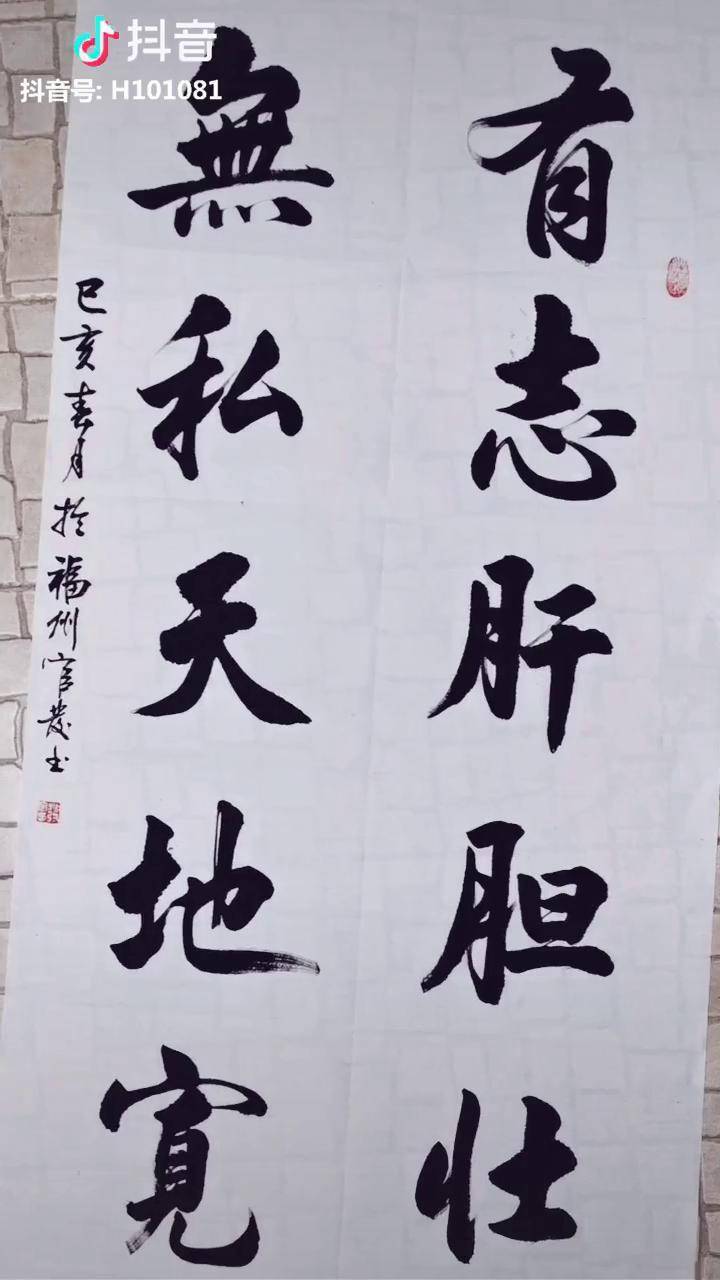 抖音
抖音号: H101081
有志肝胆壮
無私天地寬
己亥春月於福州官發书